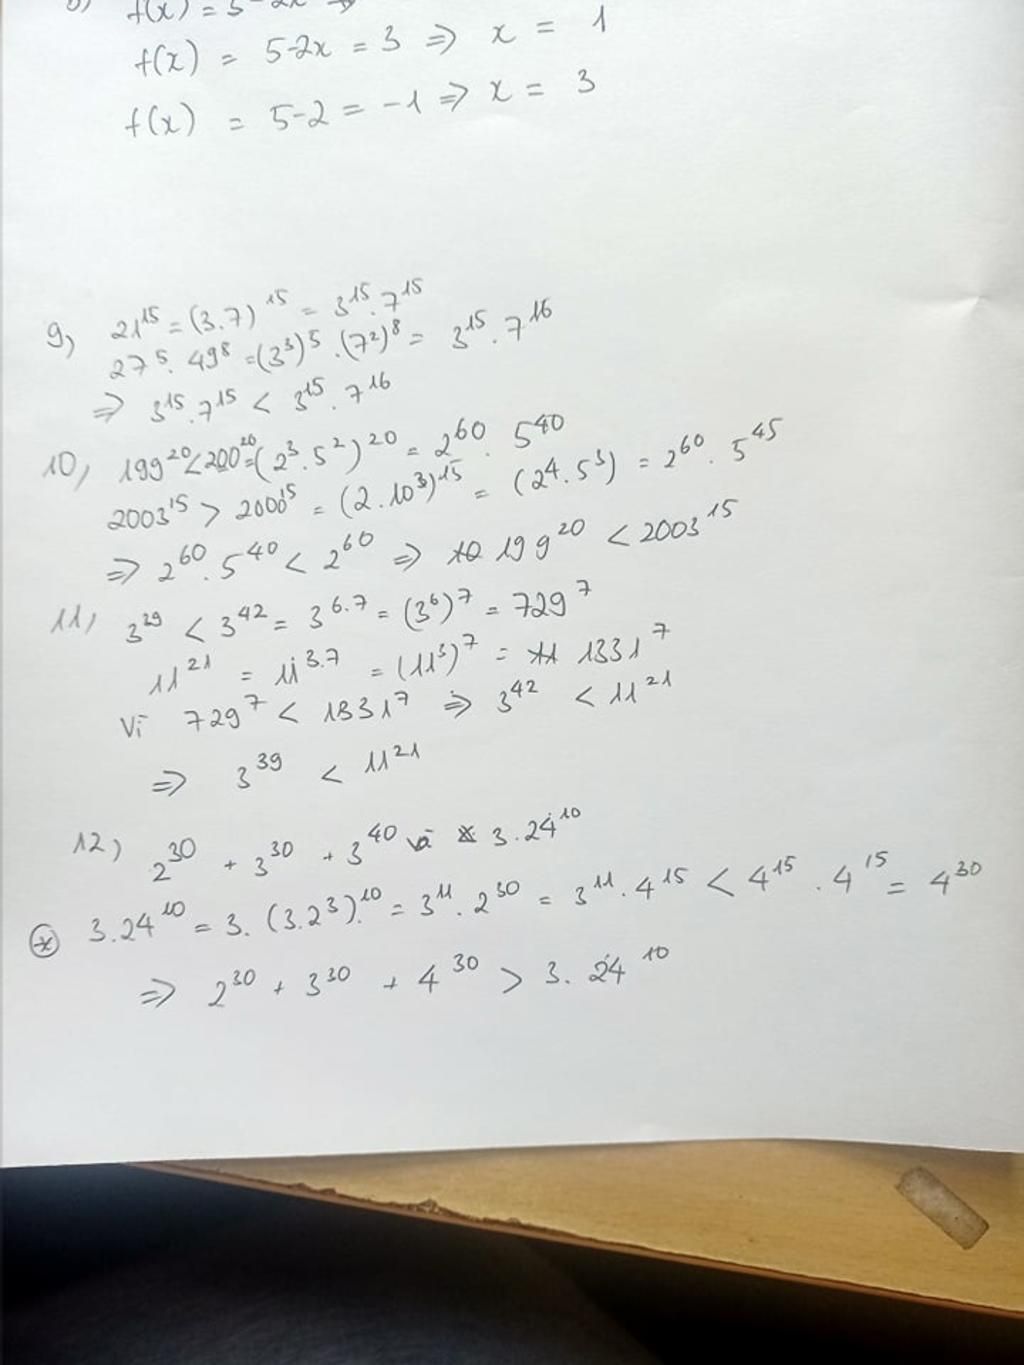 f(x) = 5-2x ⇒
f(x) = 5-2x = 3 ⇒ x = 1
f(x) = 5-2 = -1 ⇒ x = 3
9) 21¹⁵ = (3.7)¹⁵ = 3¹⁵.7¹⁵
27⁵.49⁸ = (3³)⁵.(7²)⁸ = 3¹⁵.7¹⁶
⇒ 3¹⁵.7¹⁵ < 3¹⁵.7¹⁶
10) 199²⁰ < 200²⁰ = (2³.5²)²⁰ = 2⁶⁰.5⁴⁰
2003¹⁵ > 2000¹⁵ = (2.10³)¹⁵ = (2⁴.5³) = 2⁶⁰.5⁴⁵
⇒ 2⁶⁰.5⁴⁰ < 2⁶⁰ ⇒ 199²⁰ < 2003¹⁵
11) 3²⁹ < 3⁴² = 3⁶·⁷ = (3⁶)⁷ = 729⁷
11²¹ = 11³·⁷ = (11³)⁷ = 1331⁷
Vì 729⁷ < 1331⁷ ⇒ 3⁴² < 11²¹
⇒ 3³⁹ < 11²¹
12) 2³⁰ + 3³⁰ + 3⁴⁰ và 3.24¹⁰
3.24¹⁰ = 3.(3.2³)¹⁰ = 3¹¹.2³⁰ = 3¹¹.4¹⁵ < 4¹⁵.4¹⁵ = 4³⁰
⇒ 2³⁰ + 3³⁰ + 4³⁰ > 3.24¹⁰